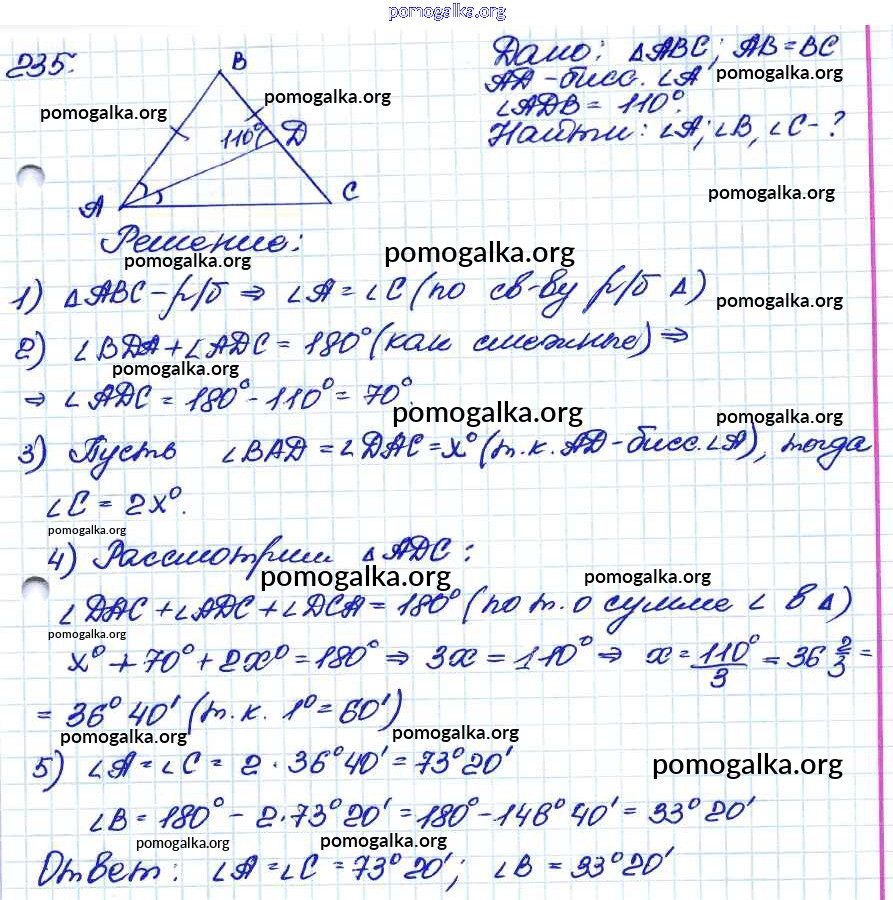 pomogalka.org
235.
B
Дано: △ABC; AB=BC
pomogalka.org
AD - бисс. ∠A
pomogalka.org
pomogalka.org
∠ADB = 110°.
110°
D
Найти: ∠A; ∠B, ∠C - ?
A
C
pomogalka.org
Решение:
pomogalka.org
pomogalka.org
1) △ABC - р/б ⇒ ∠A = ∠C (по св-ву р/б △)
pomogalka.org
2) ∠BDA + ∠ADC = 180° (как смежные) ⇒
pomogalka.org
⇒ ∠ADC = 180° - 110° = 70°.
pomogalka.org
pomogalka.org
3) Пусть ∠BAD = ∠DAC = x° (т.к. AD - бисс. ∠A), тогда
∠C = 2x°.
pomogalka.org
4) Рассмотрим △ADC:
pomogalka.org
pomogalka.org
∠DAC + ∠ADC + ∠DCA = 180° (по т. о сумме ∠ в △)
pomogalka.org
x° + 70° + 2x° = 180° ⇒ 3x = 110° ⇒ x = 110°/3 = 36 2/3 =
= 36° 40' (т.к. 1° = 60')
pomogalka.org
pomogalka.org
5) ∠A = ∠C = 2 · 36° 40' = 73° 20'
pomogalka.org
∠B = 180° - 2 · 73° 20' = 180° - 146° 40' = 33° 20'
pomogalka.org
pomogalka.org
Ответ: ∠A = ∠C = 73° 20'; ∠B = 33° 20'